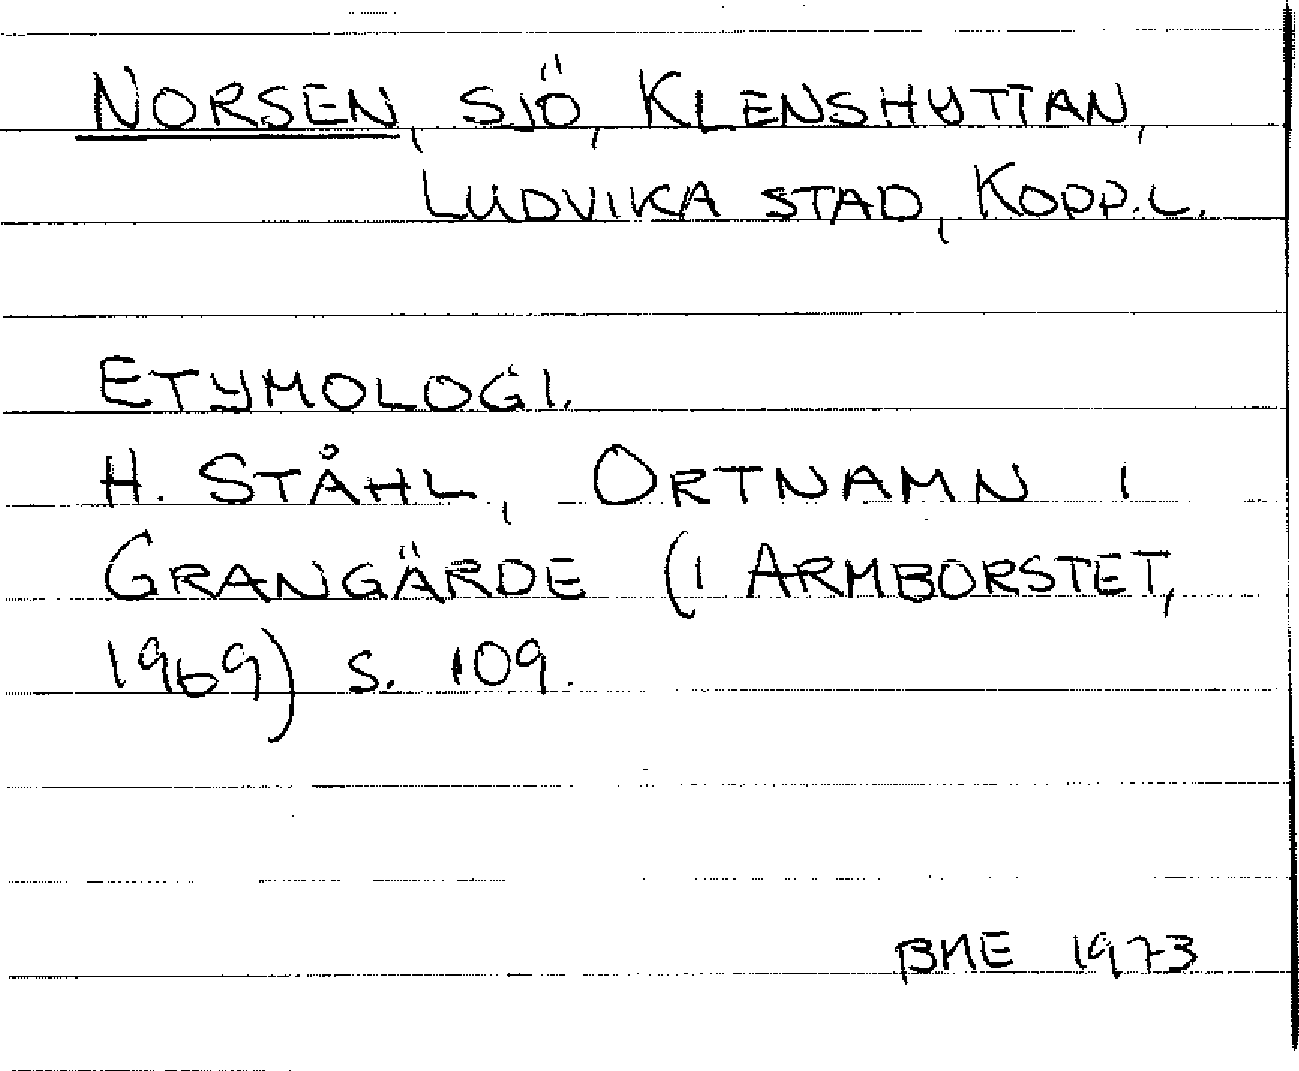 NORSEN, SJÖ, KLENSHYTTAN,
LUDVIKA STAD, KOPP.L.
ETYMOLOGI.
H. STÅHL, ORTNAMN I
GRANGÄRDE (I ARMBORSTET,
1969) S. 109.
BME 1973